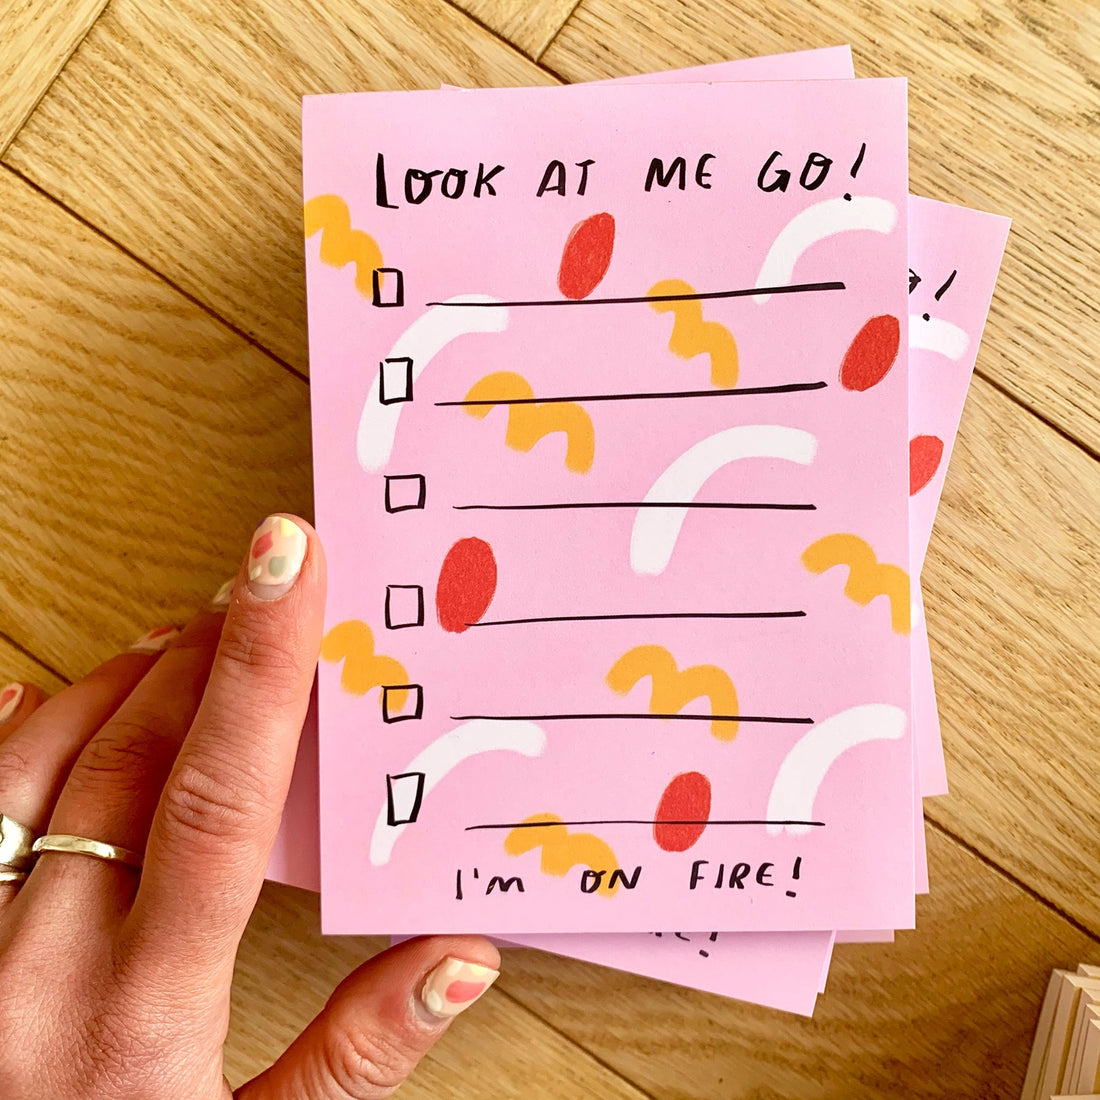 LOOK AT ME GO!
I'm ON FIRE!